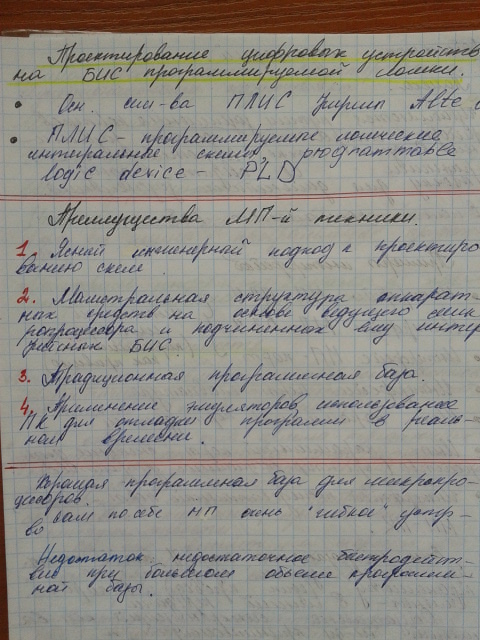 Проектирование цифровых устройств
на БИС программируемой логики.
• Осн. сем-ва ПЛИС фирмы Alte
• ПЛИС - программируемые логические
интегральные схемы, programmable
logic device - PLD
Преимущества МП-й техники.
1. Ясный инженерный подход к проектиро
ванию схем.
2. Магистральная структура аппарат-
ных средств на основе ведущего мик
ропроцессора и подчиненных ему интер
фейсных БИС
3. Традиционная программная база.
4. Применение эмуляторов, использование
ПК для отладки программ в реаль-
ном времени.
Хорошая программная база для микропро-
цессоров
сам по себе МП очень "гибкое" устр-
во
Недостаток: недостаточное быстродейст-
вие при большом объеме программ-
ной базы.